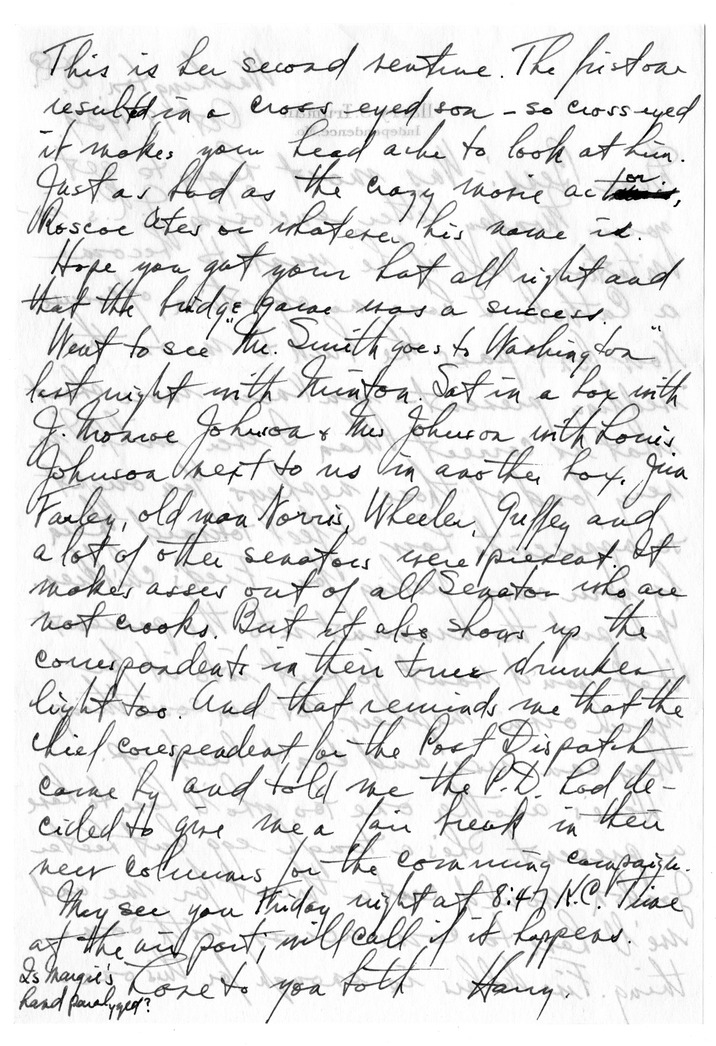 This is her second venture. The first one
resulted in a cross eyed son - so cross eyed
it makes your head ache to look at him.
Just as bad as the crazy movie actor,
Roscoe Ates or whatever his name is.
Hope you got your hat all right and
that the bridge game was a success.
Went to see "Mr. Smith goes to Washington"
last night with Minton. Sat in a box with
J. Monroe Johnson & Mrs Johnson with Louis
Johnson next to us in another box. Jim
Farley, old man Norris, Wheeler, Guffey and
a lot of other senators were present. It
makes asses out of all Senators who are
not crooks. But it also shows up the
correspondents in their true drunken
light too. And that reminds me that the
chief corespondent for the Post Dispatch
came by and told me the P.D. had de-
cided to give me a fair break in their
news columns for the comming campaign.
May see you Friday night at 8:47 K.C. Time
at the air port, will call if it happens.
Love to you both Harry.
Is Margie's
hand paralyzed?